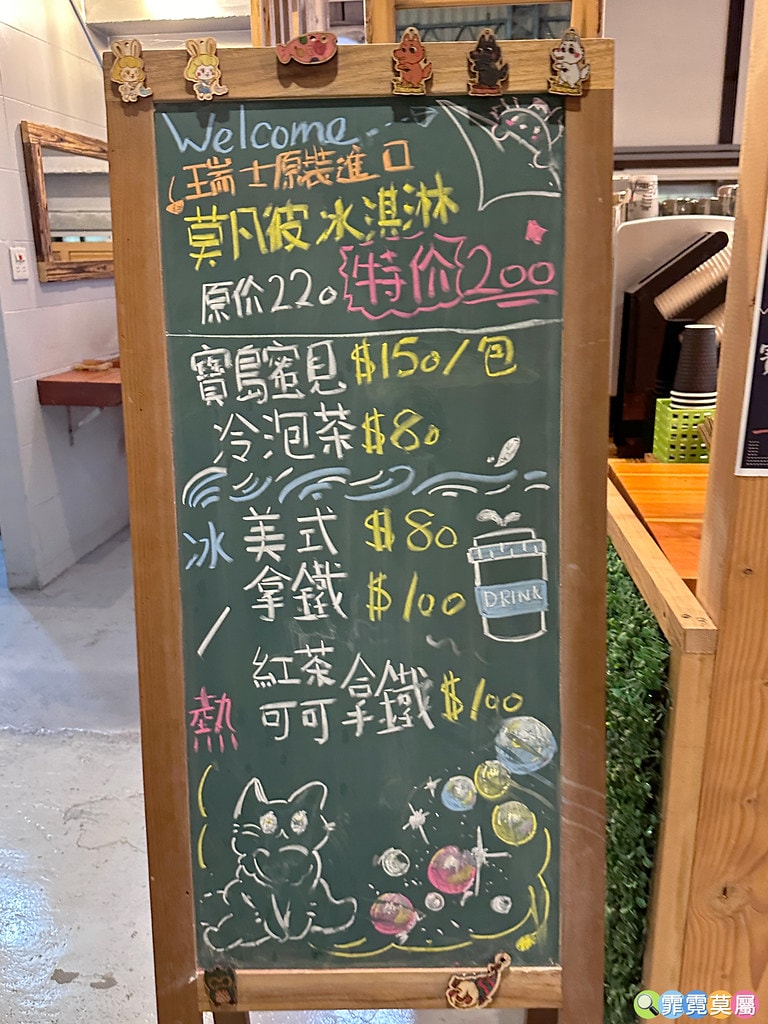 Welcome
瑞士原裝進口
莫凡彼冰淇淋
原价220 特价200
寶島蜜見 $150/包
冷泡茶 $80
冰 美式 $80
拿鐵 $100
/
DRINK
紅茶
可可 拿鐵 $100
熱
霏霓莫屬